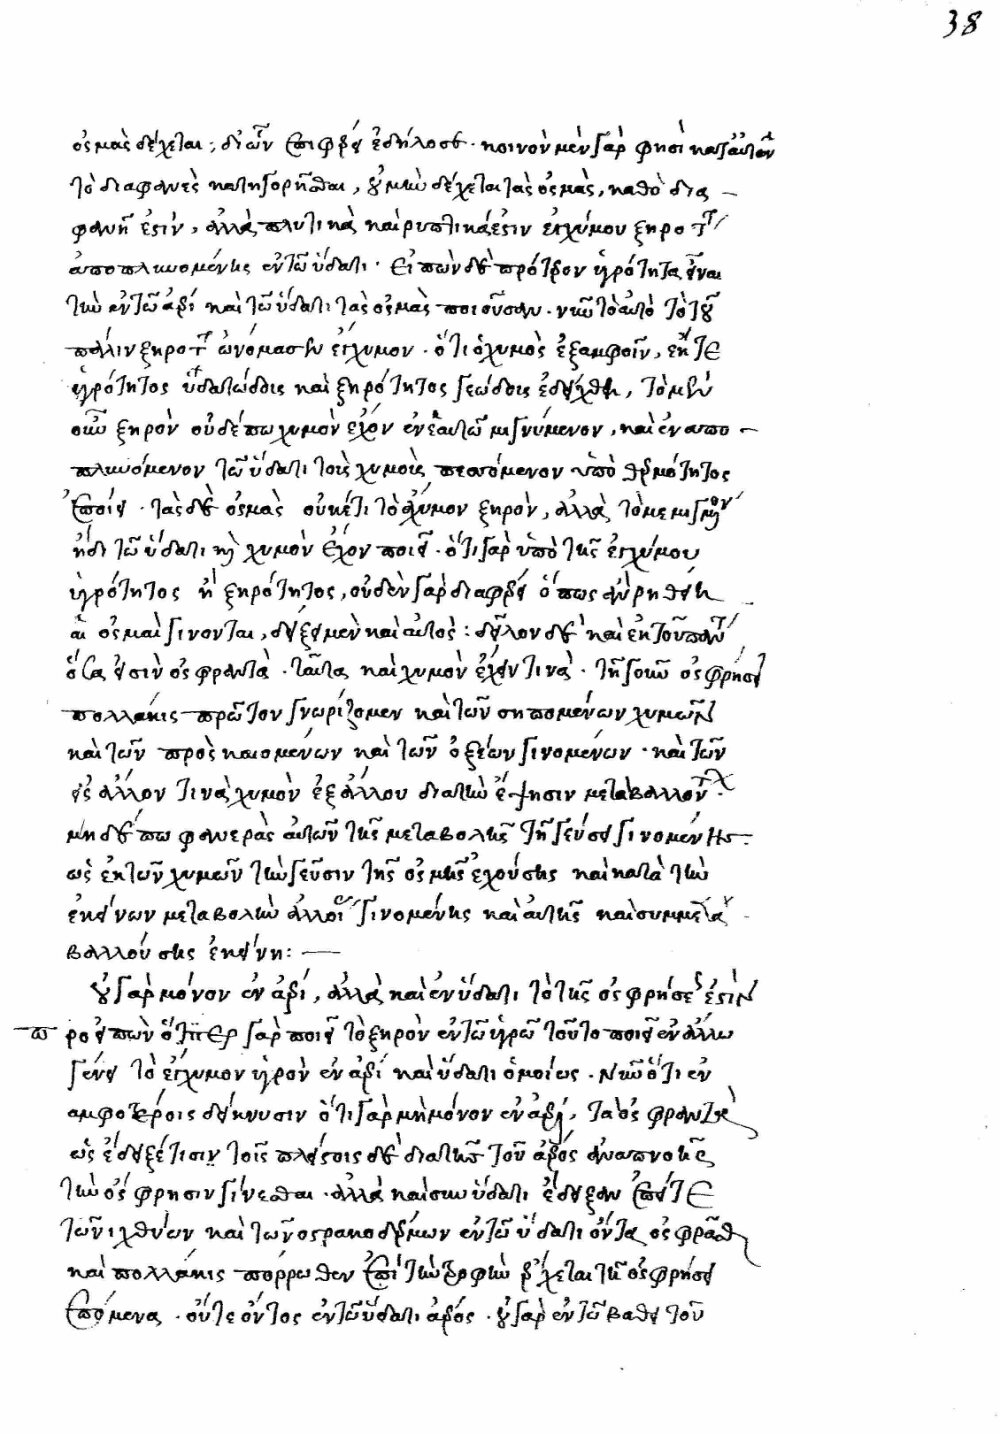 38
ὀσμὰς δέχεται; δι' ὧν ἐπιφέρει ἐδήλωσε. κοινὸν μὲν γὰρ φησὶ κατ' αὐτῶν
τὸ διαφανὲς κατηγορῆσθαι, οὐ μὴν δέχεται τὰς ὀσμὰς, καθὸ δια-
φανῆ ἐστὶν, ἀλλὰ πλυτικὰ καὶ ῥυπτικά ἐστιν ἐγχύμου ξηρότητος
ἀποπλυνομένης ἐν τῶ ὕδατι. εἰπὼν δὲ πρότερον ὑγρότητα εἶναι
τὴν ἐν τῶ ἀέρι καὶ τῶ ὕδατι τὰς ὀσμὰς ποιοῦσαν. νῦν τὸ αὐτὸ τοῦτο
πάλιν ξηρότητα ὠνόμασεν ἔγχυμον. ὅτι ὁ χυμὸς ἐξ ἀμφοῖν, ἔκ τε
ὑγρότητος ὑδατώδους καὶ ξηρότητος γεώδους ἐδείχθη, τὸ μὲν
οὖν ξηρὸν οὐδέπω χυμὸν ἔχον ἐν ἑαυτῶ μιγνύμενον, καὶ ἐναπο-
πλυνόμενον τῶ ὕδατι τοὺς χυμοὺς πεττόμενον ὑπὸ θερμότητος
ἐποίει. τὰς δὲ ὀσμὰς οὐκέτι τὸ ἄχυμον ξηρὸν, ἀλλὰ τὸ μεμιγμένον
ἤδη τῶ ὕδατι καὶ χυμὸν ἔχον ποιεῖ. ὅτι γὰρ ὑπὸ τῆς ἐγχύμου
ὑγρότητος ἢ ξηρότητος, οὐδὲν γὰρ διαφέρει ὅπως ἂν ῥηθείη
αἱ ὀσμαὶ γίνονται, δείξει μὲν καὶ αὐτός: δῆλον δὲ καὶ ἐκ τοῦ πάντα
ὅσα εἰσὶν ὀσφραντὰ. ταῦτα καὶ χυμὸν ἔχειν τινὰ. τῇ γοῦν ὀσφρήσει
πολλάκις πρῶτον γνωρίζομεν καὶ τῶν σηπομένων χυμῶν
καὶ τῶν προσκαιομένων καὶ τῶν ὀξέων γινομένων. καὶ τῶν
εἰς ἄλλον τινὰ χυμὸν ἐξ ἄλλου διὰ τὴν ἕψησιν μεταβαλλόντων.
μηδέπω φανερᾶς αὐτῶν τῆς μεταβολῆς τῇ γεύσει γινομένης.
ὡς ἐκ τῶν χυμῶν τὴν γεῦσιν τῆς ὀσμῆς ἐχούσης καὶ κατὰ τὴν
ἐκείνων μεταβολὴν ἀλλοίας γινομένης καὶ αὐτῆς καὶ συμμετα-
βαλλούσης ἐκείνη:
οὐ γὰρ μόνον ἐν ἀέρι, ἀλλὰ καὶ ἐν ὕδατι τὸ τῆς ὀσφρήσεώς ἐστιν
προειπὼν ὅπερ γὰρ ποιεῖ τὸ ξηρὸν ἐν τῶ ὑγρῶ τοῦτο ποιεῖ ἐν ἄλλω
γένει τὸ ἔγχυμον ὑγρὸν ἐν ἀέρι καὶ ὕδατι ὁμοίως. νῦν ὅτι ἐν
ἀμφοτέροις δείκνυσιν ὅτι γὰρ μὴ μόνον ἐν ἀέρι, τὰ ὀσφραντὰ
ὡς ἔδοξέ τισιν τοῖς πλείστοις δὲ διὰ τῆς τοῦ ἀέρος ἀναπνοῆς
τὴν ὄσφρησιν γίνεσθαι. ἀλλὰ καὶ ἐν ὕδατι ἔδειξεν ἐπί τε
τῶν ἰχθύων καὶ τῶν ὀστρακοδέρμων ἐν τῶ ὕδατι ὄντα ὀσφρᾶσθαι
καὶ πολλάκις πόρρωθεν ἐπὶ τὴν τροφὴν ἔρχεται τῇ ὀσφρήσει
ἑπόμενα. οὔτε ὄντος ἐν τῶ ὕδατι ἀέρος. οὐ γὰρ ἐν τῶ βάθει τοῦ